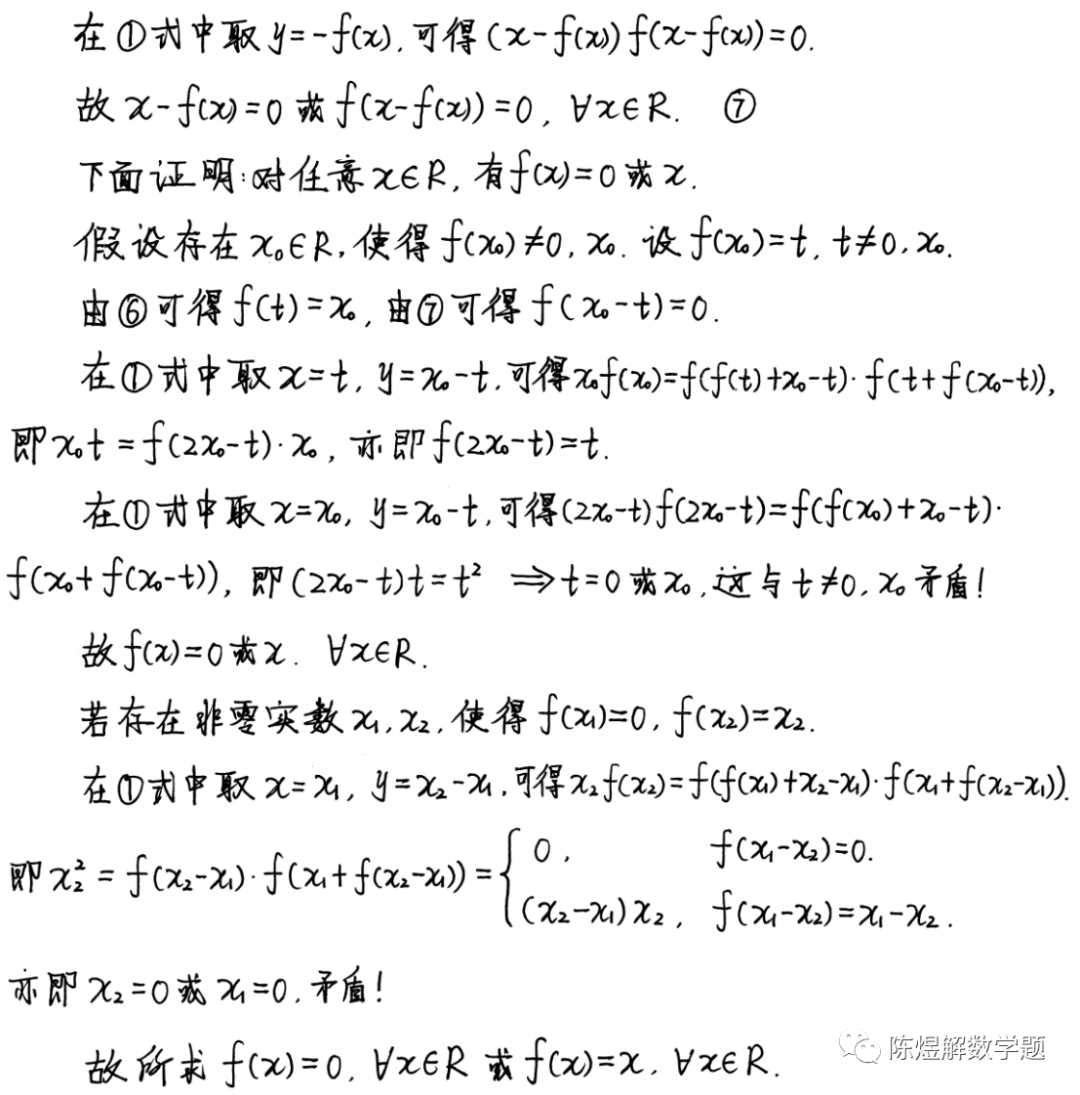 在①式中取 y=-f(x), 可得 (x-f(x))f(x-f(x))=0.
故 x-f(x)=0 或 f(x-f(x))=0, ∀x∈R. ⑦
下面证明:对任意 x∈R, 有 f(x)=0 或 x.
假设存在 x₀∈R, 使得 f(x₀)≠0, x₀. 设 f(x₀)=t, t≠0, x₀.
由⑥可得 f(t)=x₀, 由⑦可得 f(x₀-t)=0.
在①式中取 x=t, y=x₀-t, 可得 x₀f(x₀)=f(f(t)+x₀-t)·f(t+f(x₀-t)),
即 x₀t=f(2x₀-t)·x₀, 亦即 f(2x₀-t)=t.
在①式中取 x=x₀, y=x₀-t, 可得 (2x₀-t)f(2x₀-t)=f(f(x₀)+x₀-t)·
f(x₀+f(x₀-t)), 即 (2x₀-t)t=t² ⟹ t=0 或 x₀, 这与 t≠0, x₀ 矛盾!
故 f(x)=0 或 x. ∀x∈R.
若存在非零实数 x₁, x₂, 使得 f(x₁)=0, f(x₂)=x₂.
在①式中取 x=x₁, y=x₂-x₁, 可得 x₂f(x₂)=f(f(x₁)+x₂-x₁)·f(x₁+f(x₂-x₁)).
即 x₂²=f(x₂-x₁)·f(x₁+f(x₂-x₁))={ 0, f(x₁-x₂)=0.
(x₂-x₁)x₂, f(x₁-x₂)=x₁-x₂.
亦即 x₂=0 或 x₁=0, 矛盾!
故所求 f(x)=0, ∀x∈R 或 f(x)=x, ∀x∈R.
陈煜解数学题